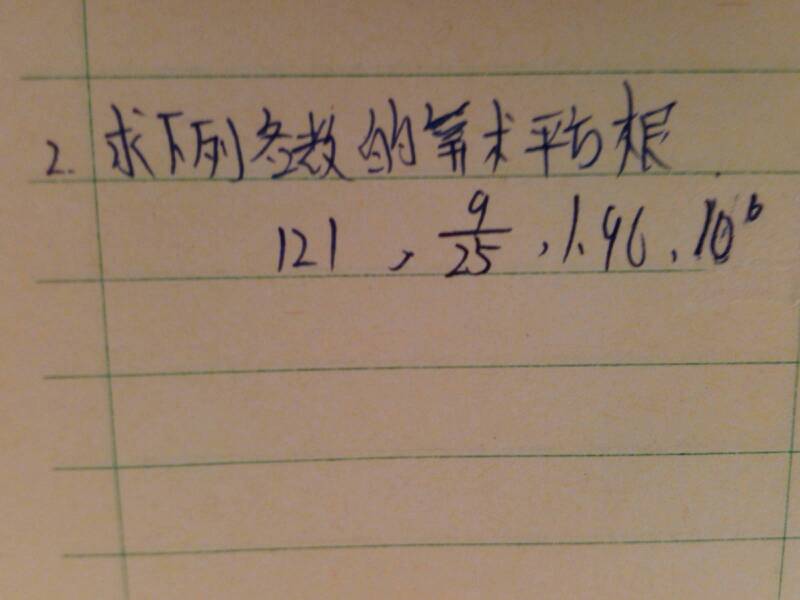 2. 求下列各数的算术平方根.
121, 9/25, 1.96, 10⁶